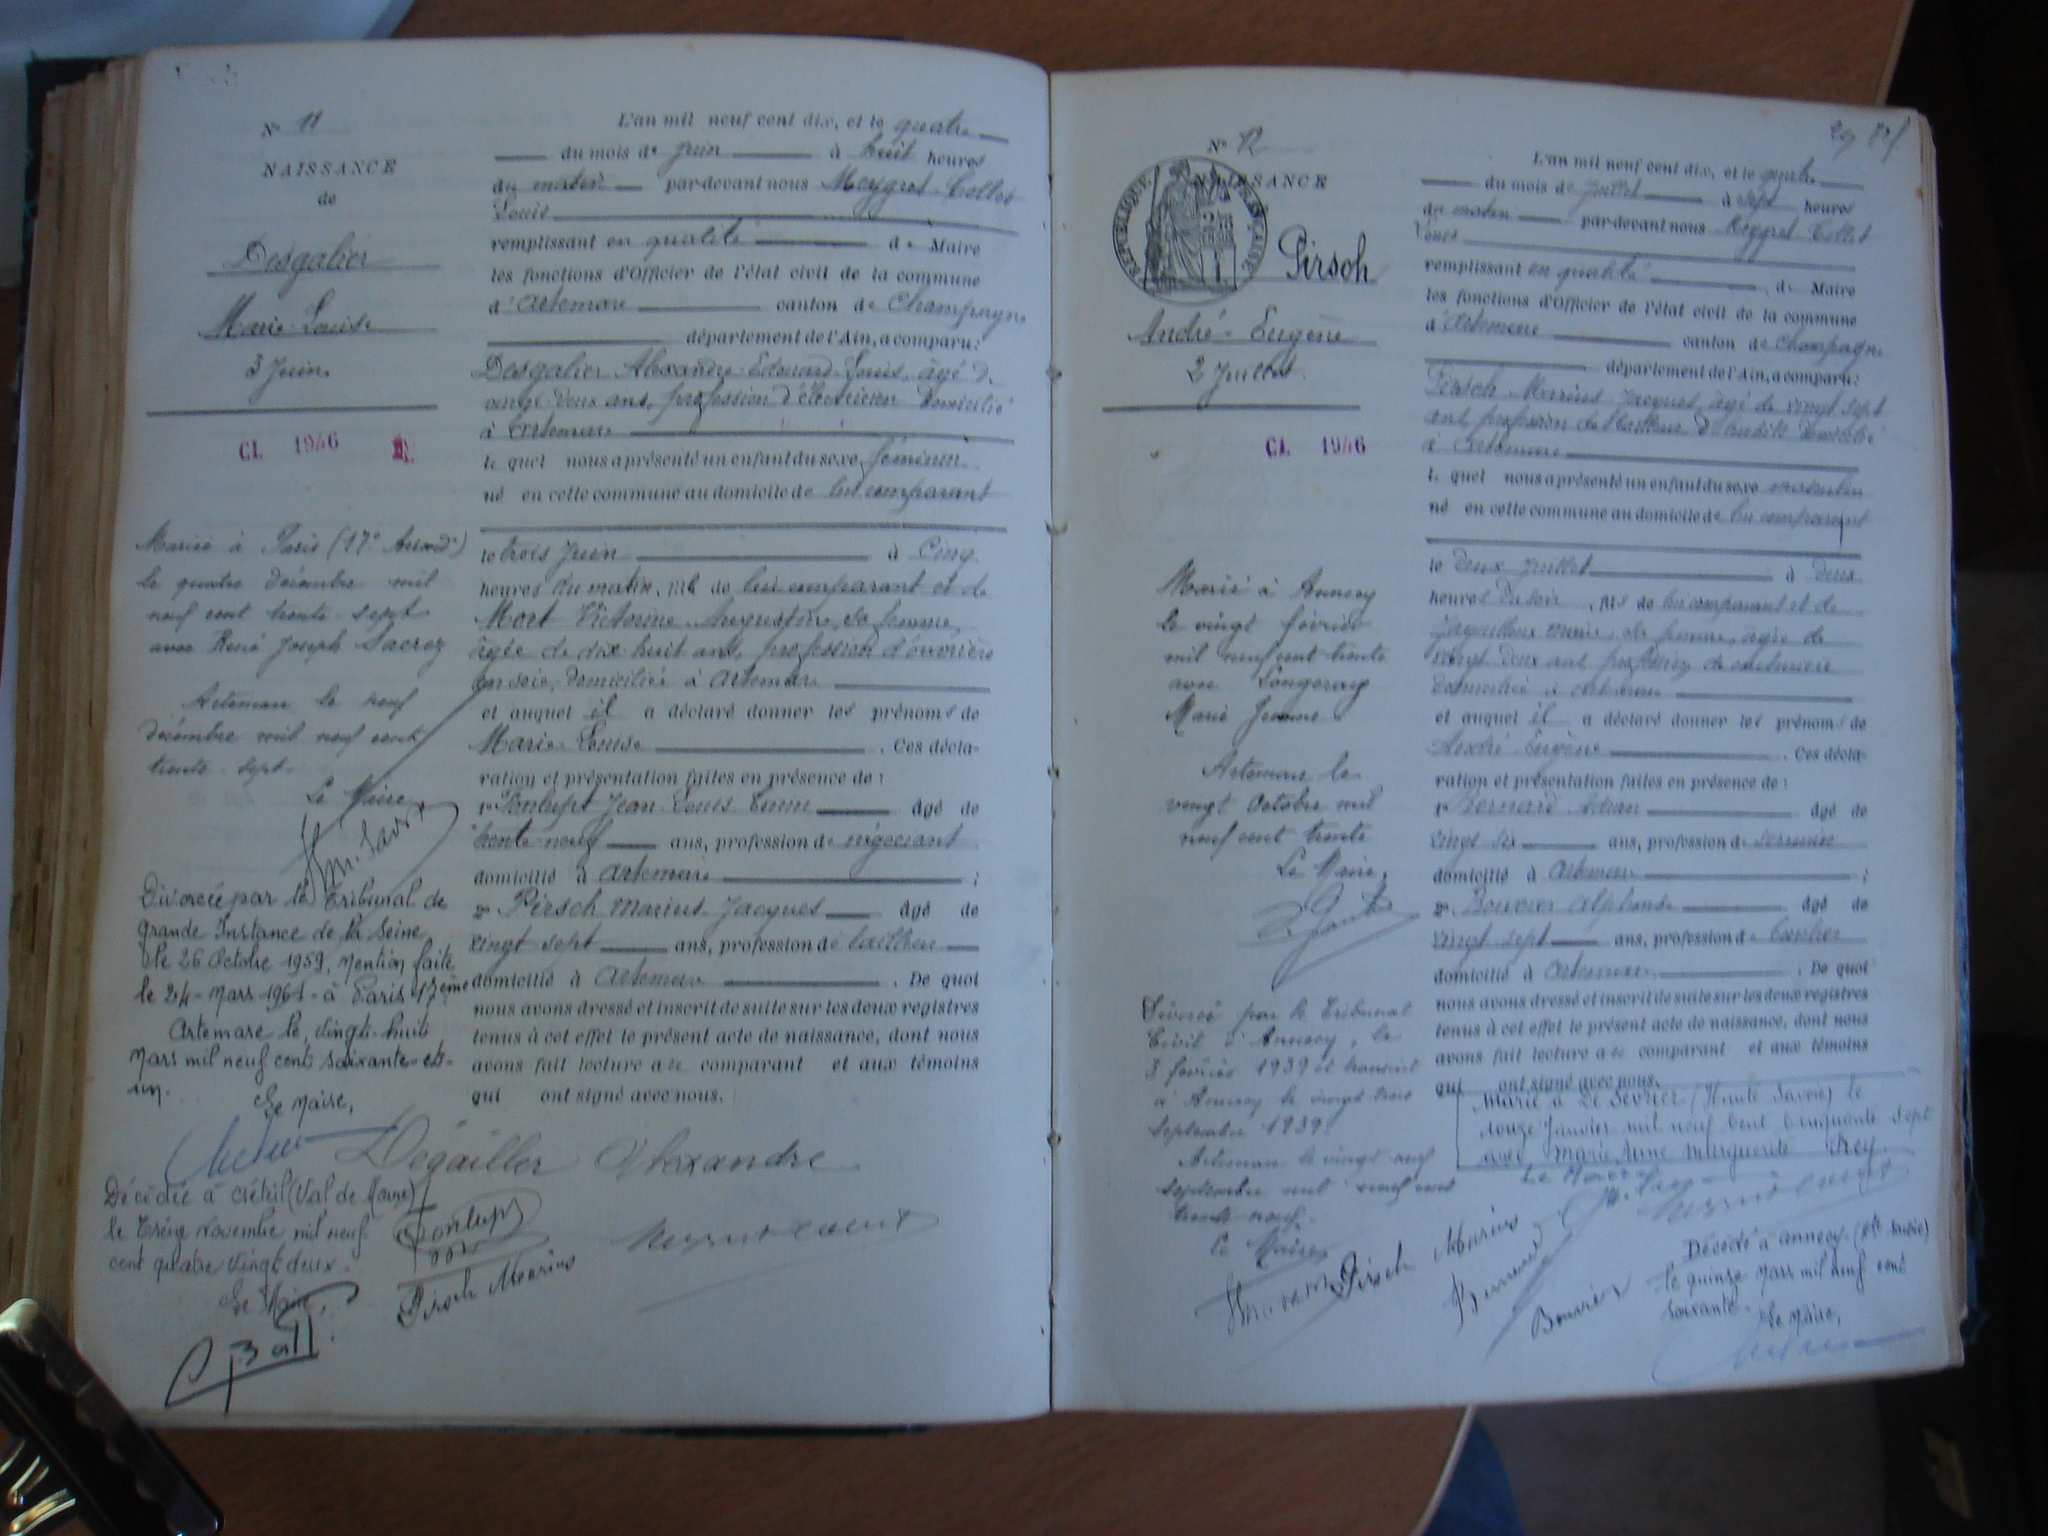 N° 11
NAISSANCE
de
Desgalier
Marie-Louise
3 Juin
CL 1946
Marié à Paris (17e Arrond)
le quatre décembre mil
neuf cent trente-sept
avec René Joseph Sacrez
Artemare le neuf
décembre mil neuf cent
trente-sept.
Le Maire
Divorcée par le Tribunal de
Grande Instance de la Seine
le 26 Octobre 1959, Mention faite
le 24 Mars 1961 à Paris 17ème
Artemare le, vingt-huit
Mars mil neuf cent soixante-et-
un.
Le Maire,
Décédée à Créteil (Val de Marne)
le treize Novembre mil neuf
cent quatre vingt deux.
Le Maire,
L'an mil neuf cent dix, et le quatre
du mois de Juin à huit heures
du matin par-devant nous Meygret-Collet
Louis
remplissant en qualité de Maire
les fonctions d'Officier de l'état civil de la commune
d'Artemare canton de Champagne
département de l'Ain, a comparu:
Desgalier Alexandre Edouard Louis, âgé de
vingt-deux ans, profession d'électricien domicilié
à Artemare
le quel nous a présenté un enfant du sexe féminin
né en cette commune au domicile de lui comparant
le trois Juin à Cinq
heures du matin, fille de lui comparant et de
Mort Victorine Augustine, sa femme,
âgée de dix-huit ans, profession d'ouvrière
en soie, domiciliée à Artemare
et auquel il a déclaré donner les prénoms de
Marie-Louise . Ces décla-
ration et présentation faites en présence de:
1° Pontupt Jean-Louis âgé de
trente-neuf ans, profession de négociant
domicilié à Artemare ;
2° Pirsch Marius-Jacques âgé de
vingt sept ans, profession de tailleur
domicilié à Artemare . De quoi
nous avons dressé et inscrit de suite sur les deux registres
tenus à cet effet le présent acte de naissance, dont nous
avons fait lecture au comparant et aux témoins
qui ont signé avec nous.
Dégailler Alexandre
Pirsch Marius
N° 12
NAISSANCE
RÉPUBLIQUE FRANÇAISE
Pirsch
André-Eugène
2 Juillet
CL 1946
Marié à Annecy
le vingt février
mil neuf cent trente
avec Longeray
Marie Jeanne
Artemare le
vingt Octobre mil
neuf cent trente
Le Maire,
Divorcé par le Tribunal
Civil d'Annecy, le
8 février 1939 et transcrit
à Annecy le vingt trois
septembre 1939
Artemare le vingt neuf
septembre mil neuf cent
trente-neuf.
Le Maire
L'an mil neuf cent dix, et le quatre
du mois de Juillet à sept heures
du matin par-devant nous Meygret-Collet
Louis
remplissant en qualité de Maire
les fonctions d'Officier de l'état civil de la commune
d'Artemare canton de Champagne
département de l'Ain, a comparu:
Pirsch Marius Jacques, âgé de vingt sept
ans, profession de tailleur d'habits domicilié
à Artemare
le quel nous a présenté un enfant du sexe masculin
né en cette commune au domicile de lui comparant
le deux Juillet à deux
heures du soir, fils de lui comparant et de
Marie, sa femme, âgée de
vingt deux ans profession de couturière
domiciliée à Artemare
et auquel il a déclaré donner les prénoms de
André-Eugène . Ces décla-
ration et présentation faites en présence de:
1° Bernard âgé de
vingt six ans, profession de
domicilié à Artemare ;
2° Bouvier Alphonse âgé de
vingt sept ans, profession de
domicilié à Artemare . De quoi
nous avons dressé et inscrit de suite sur les deux registres
tenus à cet effet le présent acte de naissance, dont nous
avons fait lecture au comparant et aux témoins
qui ont signé avec nous.
Marié à Sévrier (Haute Savoie) le
douze Janvier mil neuf cent cinquante sept
avec Marie Anne Marguerite
Le Maire
Pirsch Marius
Bernard
Bouvier
Décédé à Annecy (Hte Savoie)
le quinze Mars mil neuf cent
soixante.
Le Maire,